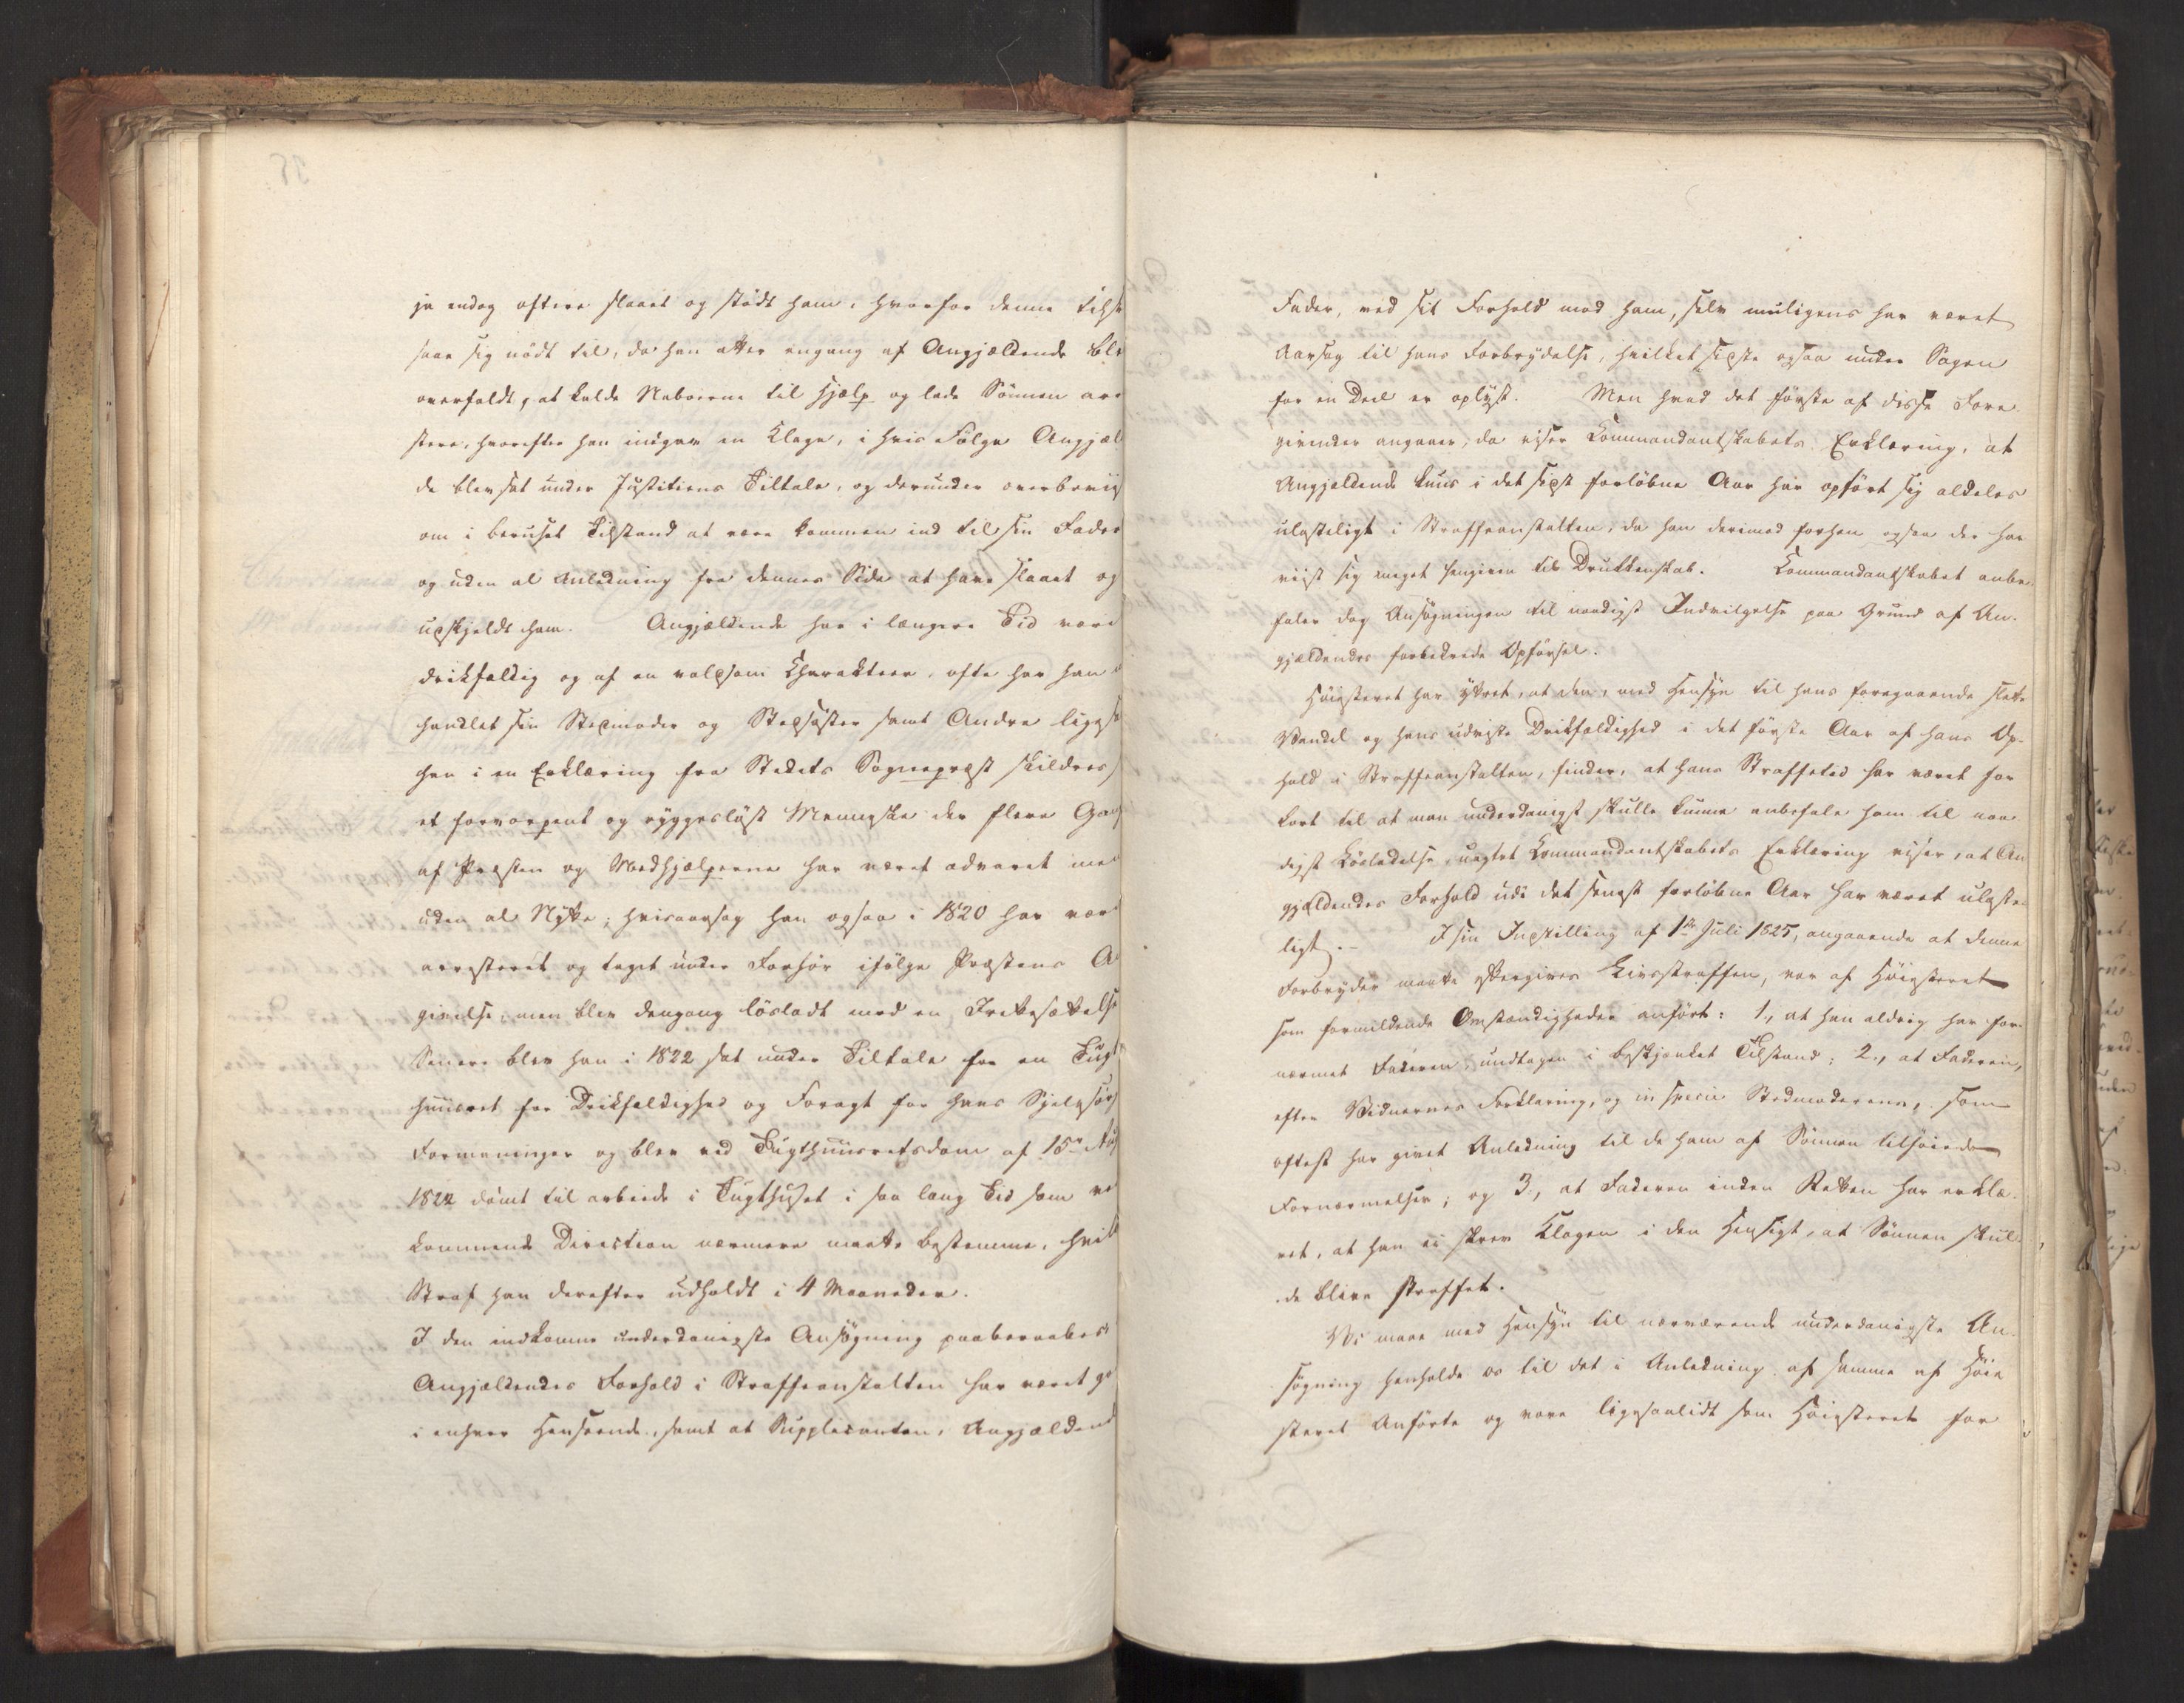 ja endog oftere slaaet og stödt ham, hvorfor denne tilsi
saae sig nödt til, da han atter engang af Angjældende ble
overfaldt, at kalde Naboerne til Hjælp og lade Sönnen arre
stere, hvorefter han indgav en Klage, i hvis Fölge Angjæl
de blev sat under Justitiens Tiltale, og derunder overbeviis
om i beruset Tilstand at være kommen ind til sin Fader
og uden al Anledning fra dennes Side at have slaaet og
udskjeldt ham. Angjældende har i længere Tid være
drikfældig og af en voldsom Charakteer, ofte har han
handlet sin Stedmoder og Stedsöster samt Andre ligesom
han i en Erklæring fra Stedets Sognepræst skildres s
et forvorpent og ryggeslöst Menneske der flere Gan
af Præsten og Medhjælperne har været advaret men
uden al Nytte; hvisaarsag han ogsaa i 1820 har være
arresteret og taget under Forhör ifölge Præstens A
givelse, men blev dengang lösladt med en Irettesættelse
Senere blev han i 1822 sat under Tiltale for en Tugt
huusret for Drikfældighed og Foragt for hans Sjelesörg
Formaninger og blev ved Tugthuusretsdom af 15de Aug
1822 dömt til arbeide i Tugthuset i saa lang Tid som ved
kommende Direction nærmere maatte bestemme, hvilk
Straf han derefter udholdt i 4 Maaneder.
I den indkomne underdanigste Ansögning paaberaabes
Angjældendes Forhold i Straffeanstalten har været go
i enhver Henseende, samt at Supplicanten, Angjældend
Fader, ved sit Forhold mod ham, selv muligens har været
Aarsag til hans Forbrydelse, hvilket sidste ogsaa under Sagen
for en Deel er oplyst. Men hvad det förste af disse Fore
givender angaaer, da viser Kommandantskabets Erklæring, at
Angjældende kuns i det sidst forlöbne Aar har opfört sig aldeles
ulasteligt i Straffeanstalten, da han derimod forhen ogsaa der har
viist sig meget hengiven til Drukkenskab. Kommandantskabet anbe
faler dog Ansögningen til naadigst Indvilgelse paa Grund af An-
gjældendes forbedrede Opförsel.
Höiesteret har yttret, at den, med Hensyn til hans foregaaende slette
Vandel og hans udviste Drikfældighed i det förste Aar af hans Op-
hold i Straffeanstalten, finder, at hans Straffetid har været for
kort til at man underdanigst skulle kunne anbefale ham til naa
digst Lösladelse, uagtet Kommandantskabets Erklæring viser, at An
gjældendes Forhold udi det senest forlöbne Aar har været ulaste-
ligt. — I sin Indstilling af 1ste Juli 1825, angaaende at denne
Forbryder maatte eftergives Livsstraffen, var af Höiesteret
som formildende Omstændigheder anfört: 1., at han aldrig har for-
nærmet Faderen, undtagen i beskjænket Tilstand; 2., at Faderen,
efter Vidnernes Forklaring, og in specie Stedmoderens, som
oftest har givet Anledning til de ham af Sönnen tilföiede
Fornærmelser; og 3., at Faderen inden Retten har erklæ-
ret, at han ei skrev Klagen i den Hensigt, at Sönnen skul
de blive straffet.
Vi maae med Hensyn til nærværende underdanigste An-
sögning henholde os til det i Anledning af samme af Höie
steret Anförte og vove ligesaalidt som Höiesteret for